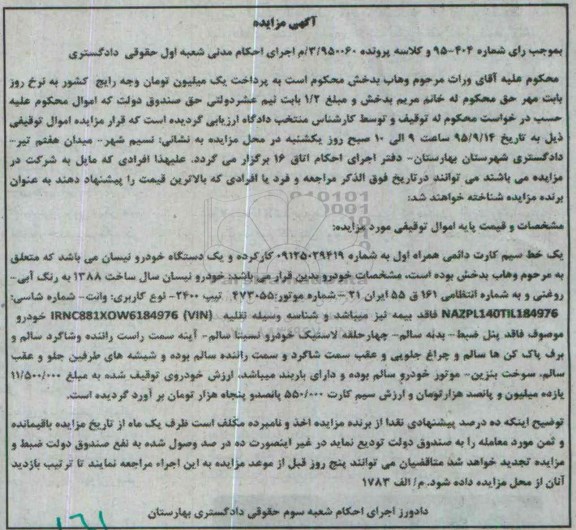 آگهی مزایده
بموجب رای شماره ۴۰۴-۹۵ و کلاسه پرونده ۳/۹۵۰۰۶۰/م اجرای احکام مدنی شعبه اول حقوقی دادگستری
محکوم علیه آقای وراث مرحوم وهاب بدخش محکوم است به پرداخت یک میلیون تومان وجه رایج کشور به نرخ روز
بابت مهر حق محکوم له خانم مریم بدخش و مبلغ ۱/۲ بابت نیم عشردولتی حق صندوق دولت که اموال محکوم علیه
حسب در خواست محکوم له توقیف و توسط کارشناس منتخب دادگاه ارزیابی گردیده است که قرار مزایده اموال توقیفی
ذیل به تاریخ ۹۵/۹/۱۴ ساعت ۹ الی ۱۰ صبح روز یکشنبه در محل مزایده به نشانی: نسیم شهر- میدان هفتم تیر-
دادگستری شهرستان بهارستان- دفتر اجرای احکام اتاق ۱۶ برگزار می گردد. علیهذا افرادی که مایل به شرکت در
مزایده می باشند می توانند درتاریخ فوق الذکر مراجعه و فرد یا افرادی که بالاترین قیمت را پیشنهاد دهند به عنوان
برنده مزایده شناخته خواهند شد:
مشخصات و قیمت پایه اموال توقیفی مورد مزایده:
یک خط سیم کارت دائمی همراه اول به شماره ۰۹۱۲۵۰۲۹۴۱۹ کارکرده و یک دستگاه خودرو نیسان می باشد که متعلق
به مرحوم وهاب بدخش بوده است. مشخصات خودرو بدین قرار می باشد: خودرو نیسان سال ساخت ۱۳۸۸ به رنگ آبی-
روغنی و به شماره انتظامی ۱۶۱ ق ۵۵ ایران ۲۱ - شماره موتور: ۴۷۳۰۵۵ تیپ ۲۴۰۰- نوع کاربری: وانت- شماره شاسی:
NAZPL140TIL184976 فاقد بیمه نیز میباشد و شناسه وسیله نقلیه (VIN) IRNC881XOW6184976 خودرو
موصوف فاقد پنل ضبط- بدنه سالم- چهارحلقه لاستیک خودرو نسبتا سالم- آینه سمت راست راننده وشاگرد سالم و
برف پاک کن ها سالم و چراغ جلویی و عقب سمت شاگرد و سمت راننده سالم بوده و شیشه های طرفین جلو و عقب
سالم، سوخت بنزین- موتور خودرو سالم بوده و دارای باربند میباشد. ارزش خودروی توقیف شده به مبلغ ۱۱/۵۰۰/۰۰۰
یازده میلیون و پانصد هزارتومان و ارزش سیم کارت ۵۵۰/۰۰۰ پانصدو پنجاه هزار تومان بر آورد گردیده است.
توضیح اینکه ده درصد پیشنهادی نقدا از برنده مزایده اخذ و نامبرده مکلف است ظرف یک ماه از تاریخ مزایده باقیمانده
و ثمن مورد معامله را به صندوق دولت تودیع نماید در غیر اینصورت ده در صد وصول شده به نفع صندوق دولت ضبط و
مزایده تجدید خواهد شد متقاضیان می توانند پنج روز قبل از موعد مزایده به این اجراء مراجعه نمایند تا ترتیب بازدید
آنان از محل مزایده داده شود. م/ الف ۱۷۸۳
دادورز اجرای احکام شعبه سوم حقوقی دادگستری بهارستان
۱۶۱